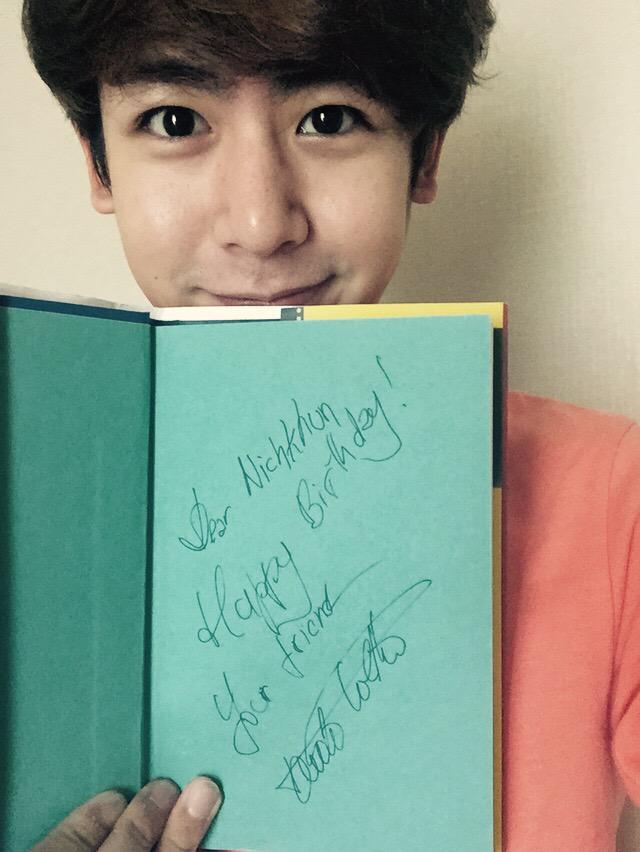 Dear Nichkhun
Happy Birthday!
Your friend